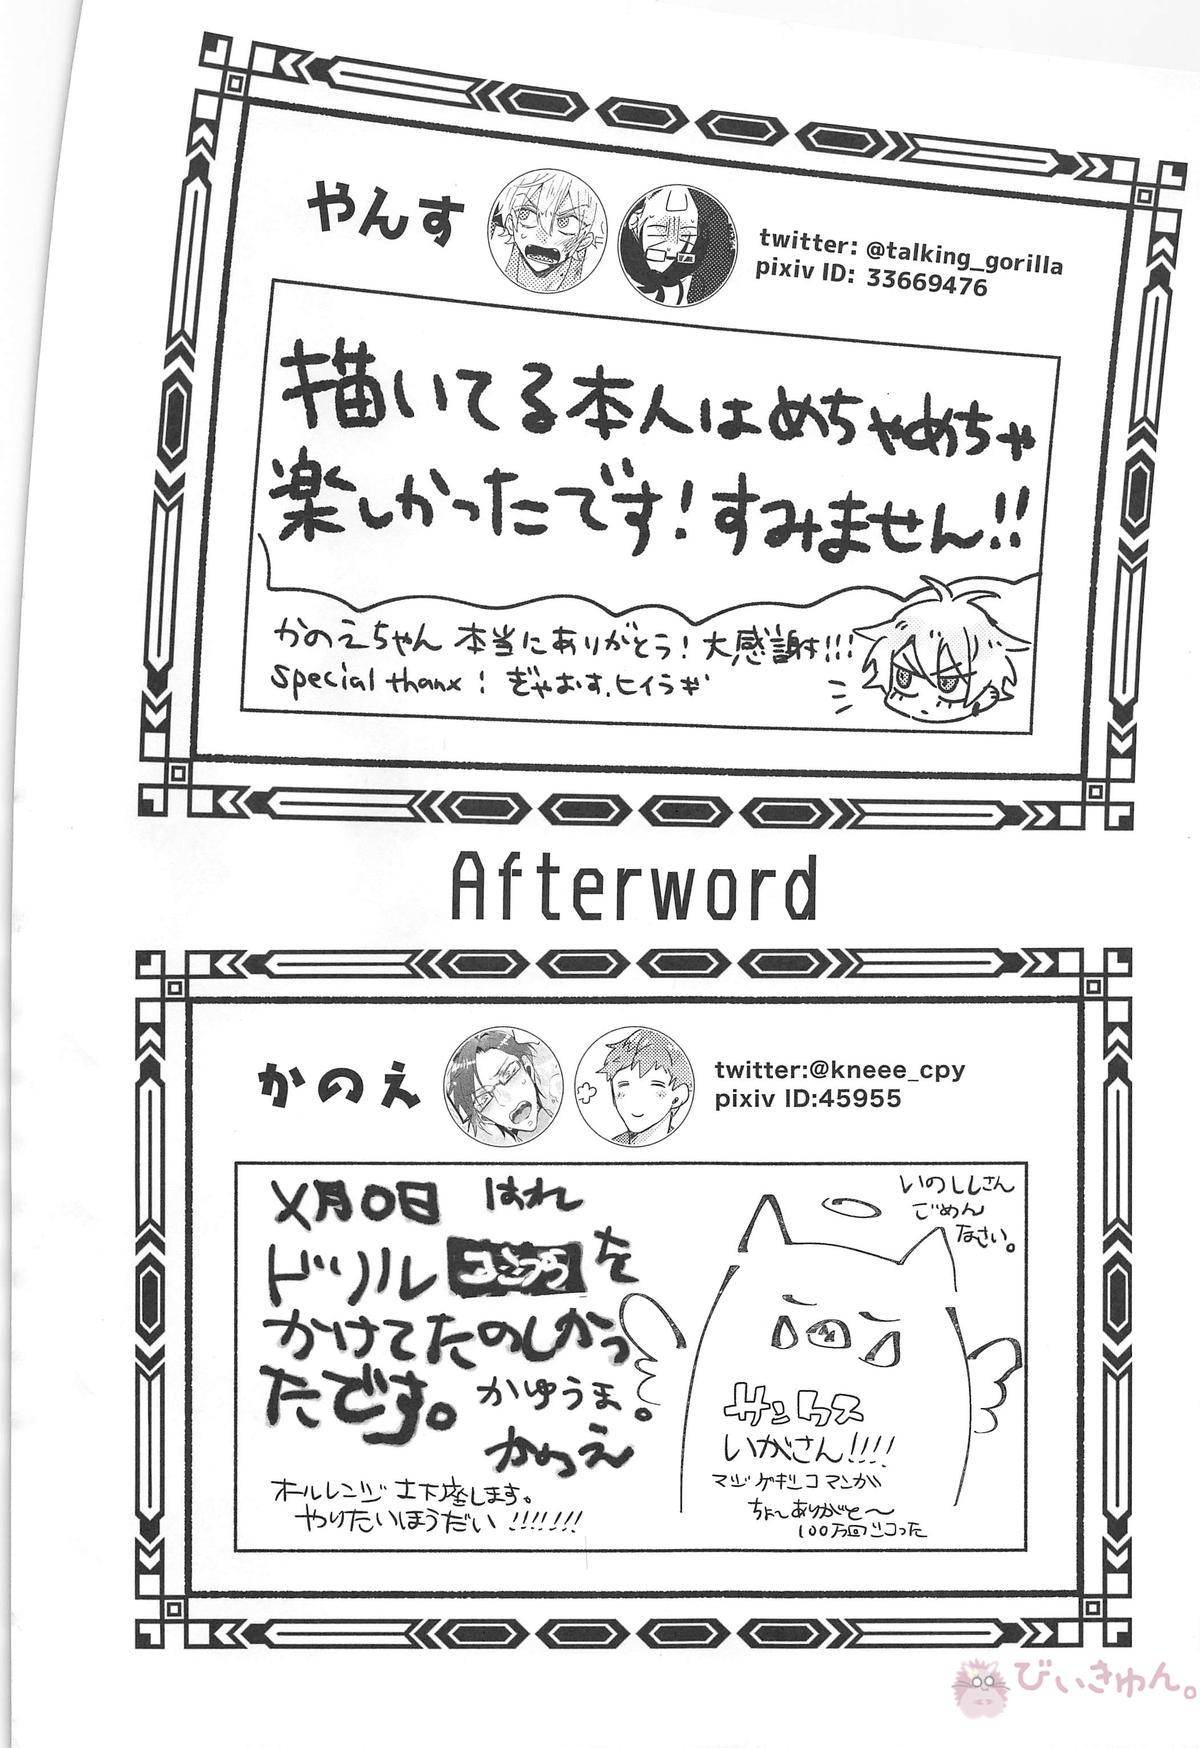 やんす
twitter: @talking_gorilla
pixiv ID: 33669476
描いてる本人はめちゃめちゃ
楽しかったです!すみません!!
かのえちゃん 本当にありがとう!大感謝!!!
special thanx! ぎゃおす.ヒイラギ
Afterword
かのえ
twitter:@kneee_cpy
pixiv ID:45955
X月0日 はれ
ドリル
を
かけてたのしかっ
たです。かゆうま。
かのえ
オールレンジ土下座します。
やりたいほうだい!!!!!!!
いのししさん
ごめん
なさい。
サンクス
いがさん!!!!
マジゲキシコマンガ
ちょーありがと〜
100万回シコった
びぃきゅん。